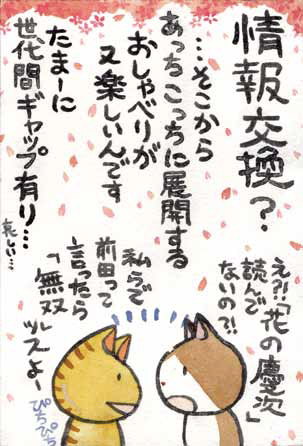 情報交換?
…そこから
あっちこっちに展開する
おしゃべりが
又楽しいんです
たまーに
世代間ギャップ有り…
哀しい…
え?!「花の慶次」
読んで
ないの?!
私らで
前田って
言ったら
「無双」ッスよー
ぴちぴち